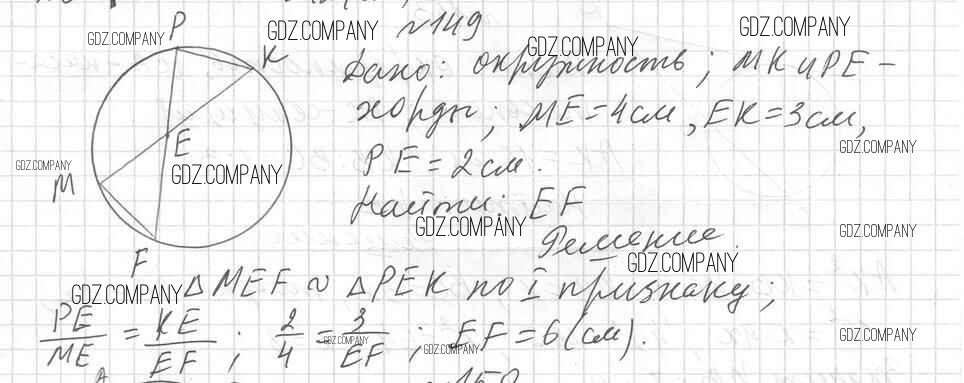 N149
P
K
E
M
F
Дано: окружность; MK и PE –
хорды; ME = 4 см, EK = 3 см,
PE = 2 см.
Найти: EF
Решение.
△MEF ~ △PEK по I признаку;
PE/ME = KE/EF; 2/4 = 3/EF; EF = 6 (см).
150
GDZ.COMPANY
GDZ.COMPANY
GDZ.COMPANY
GDZ.COMPANY
GDZ.COMPANY
GDZ.COMPANY
GDZ.COMPANY
GDZ.COMPANY
GDZ.COMPANY
GDZ.COMPANY
GDZ.COMPANY
GDZ.COMPANY
GDZ.COMPANY
GDZ.COMPANY